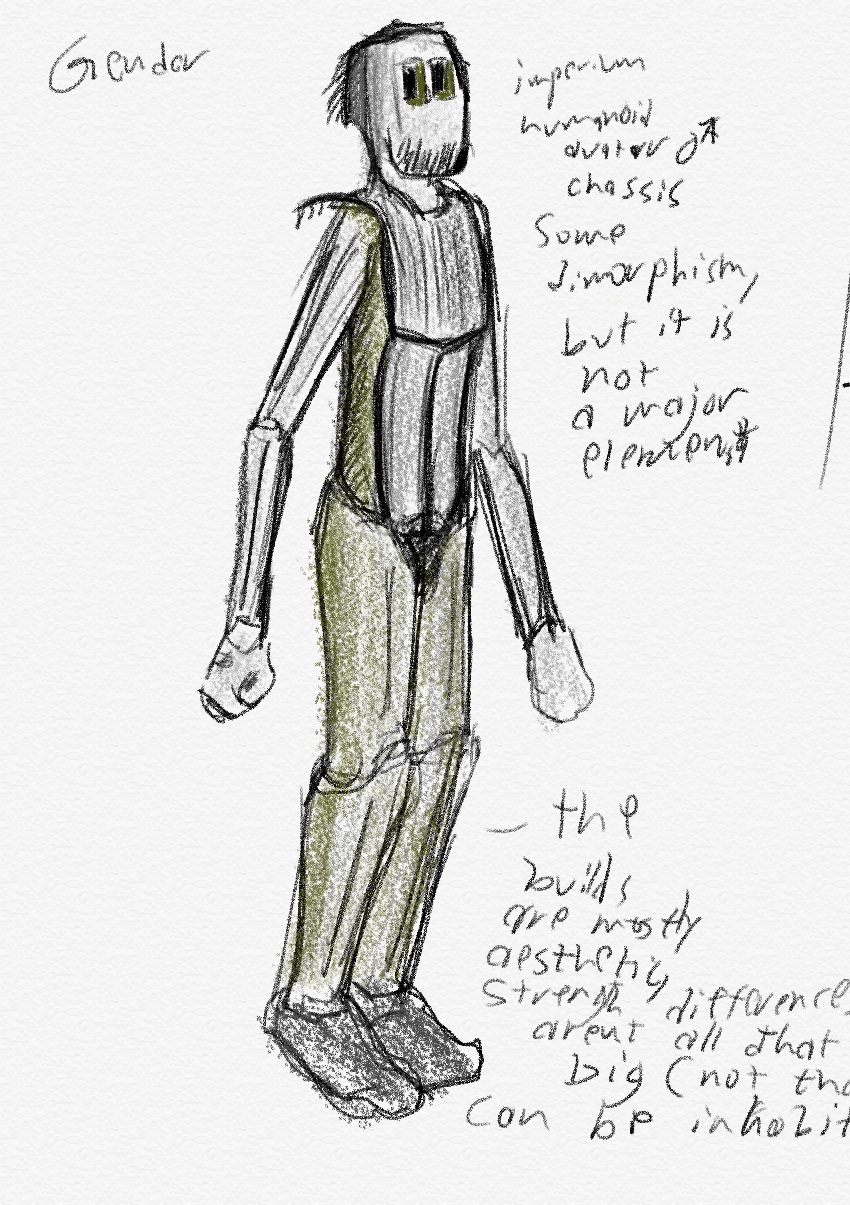 Gendar
imperium
humanoid
avatar ♂
chassis
Some
dimorphism,
but it is
not
a major
element
– the
builds
are mostly
aesthetic,
Strength differences
arent all that
big (not tha
Can be